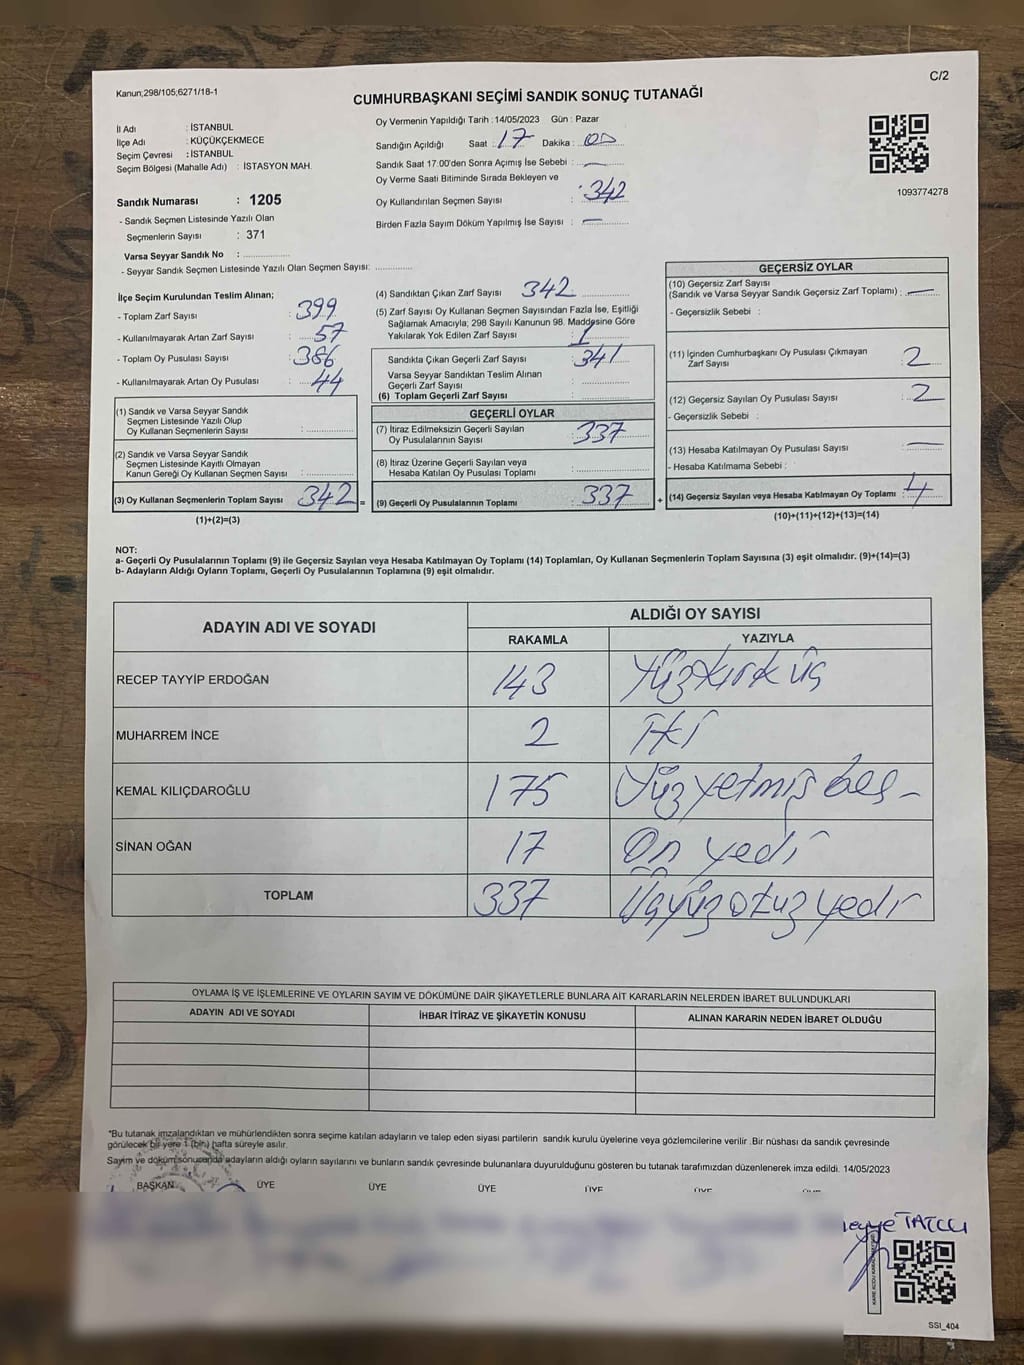 C/2
Kanun;298/105;6271/18-1
CUMHURBAŞKANI SEÇİMİ SANDIK SONUÇ TUTANAĞI
İl Adı : İSTANBUL
İlçe Adı : KÜÇÜKÇEKMECE
Seçim Çevresi : İSTANBUL
Seçim Bölgesi (Mahalle Adı) : İSTASYON MAH.
Sandık Numarası : 1205
- Sandık Seçmen Listesinde Yazılı Olan
Seçmenlerin Sayısı : 371
Varsa Seyyar Sandık No : ................
- Seyyar Sandık Seçmen Listesinde Yazılı Olan Seçmen Sayısı: .............
Oy Vermenin Yapıldığı Tarih :14/05/2023 Gün : Pazar
Sandığın Açıldığı Saat : 17 Dakika : 00
Sandık Saat 17:00'den Sonra Açımış İse Sebebi : —
Oy Verme Saati Bitiminde Sırada Bekleyen ve
Oy Kullandırılan Seçmen Sayısı : 342
Birden Fazla Sayım Döküm Yapılmış İse Sayısı : —
1093774278
İlçe Seçim Kurulundan Teslim Alınan;
- Toplam Zarf Sayısı : 399
- Kullanılmayarak Artan Zarf Sayısı : 57
- Toplam Oy Pusulası Sayısı : 386
- Kullanılmayarak Artan Oy Pusulası : 44
(1) Sandık ve Varsa Seyyar Sandık
Seçmen Listesinde Yazılı Olup
Oy Kullanan Seçmenlerin Sayısı : ................
(2) Sandık ve Varsa Seyyar Sandık
Seçmen Listesinde Kayıtlı Olmayan
Kanun Gereği Oy Kullanan Seçmen Sayısı : ................
(3) Oy Kullanan Seçmenlerin Toplam Sayısı 342 =
(1)+(2)=(3)
(4) Sandıktan Çıkan Zarf Sayısı 342
(5) Zarf Sayısı Oy Kullanan Seçmen Sayısından Fazla İse, Eşitliği
Sağlamak Amacıyla; 298 Sayılı Kanunun 98. Maddesine Göre
Yakılarak Yok Edilen Zarf Sayısı : 1
Sandıkta Çıkan Geçerli Zarf Sayısı : 341
Varsa Seyyar Sandıktan Teslim Alınan
Geçerli Zarf Sayısı : ................
(6) Toplam Geçerli Zarf Sayısı : ................
GEÇERLİ OYLAR
(7) İtiraz Edilmeksizin Geçerli Sayılan
Oy Pusulalarının Sayısı : 337
(8) İtiraz Üzerine Geçerli Sayılan veya
Hesaba Katılan Oy Pusulası Toplamı : ................
(9) Geçerli Oy Pusulalarının Toplamı : 337 +
GEÇERSİZ OYLAR
(10) Geçersiz Zarf Sayısı
(Sandık ve Varsa Seyyar Sandık Geçersiz Zarf Toplamı) : —
- Geçersizlik Sebebi :
(11) İçinden Cumhurbaşkanı Oy Pusulası Çıkmayan
Zarf Sayısı : 2
(12) Geçersiz Sayılan Oy Pusulası Sayısı : 2
- Geçersizlik Sebebi :
(13) Hesaba Katılmayan Oy Pusulası Sayısı : —
- Hesaba Katılmama Sebebi :
(14) Geçersiz Sayılan veya Hesaba Katılmayan Oy Toplamı : 4
(10)+(11)+(12)+(13)=(14)
NOT:
a- Geçerli Oy Pusulalarının Toplamı (9) ile Geçersiz Sayılan veya Hesaba Katılmayan Oy Toplamı (14) Toplamları, Oy Kullanan Seçmenlerin Toplam Sayısına (3) eşit olmalıdır. (9)+(14)=(3)
b- Adayların Aldığı Oyların Toplamı, Geçerli Oy Pusulalarının Toplamına (9) eşit olmalıdır.
ADAYIN ADI VE SOYADI ALDIĞI OY SAYISI
RAKAMLA YAZIYLA
RECEP TAYYİP ERDOĞAN 143 Yüzkırk üç
MUHARREM İNCE 2 İki
KEMAL KILIÇDAROĞLU 175 Yüz yetmiş beş -
SİNAN OĞAN 17 On yedi
TOPLAM 337 Üçyüz otuz yedi
OYLAMA İŞ VE İŞLEMLERİNE VE OYLARIN SAYIM VE DÖKÜMÜNE DAİR ŞİKAYETLERLE BUNLARA AİT KARARLARIN NELERDEN İBARET BULUNDUKLARI
ADAYIN ADI VE SOYADI İHBAR İTİRAZ VE ŞİKAYETİN KONUSU ALINAN KARARIN NEDEN İBARET OLDUĞU
*Bu tutanak imzalandıktan ve mühürlendikten sonra seçime katılan adayların ve talep eden siyasi partilerin sandık kurulu üyelerine veya gözlemcilerine verilir .Bir nüshası da sandık çevresinde
görülecek bir yere 1 (bir) hafta süreyle asılır.
Sayım ve döküm sonucunda adayların aldığı oyların sayılarını ve bunların sandık çevresinde bulunanlara duyurulduğunu gösteren bu tutanak tarafımızdan düzenlenerek imza edildi. 14/05/2023
BAŞKAN ÜYE ÜYE ÜYE ÜYE ÜYE
TATCI
SSI_404